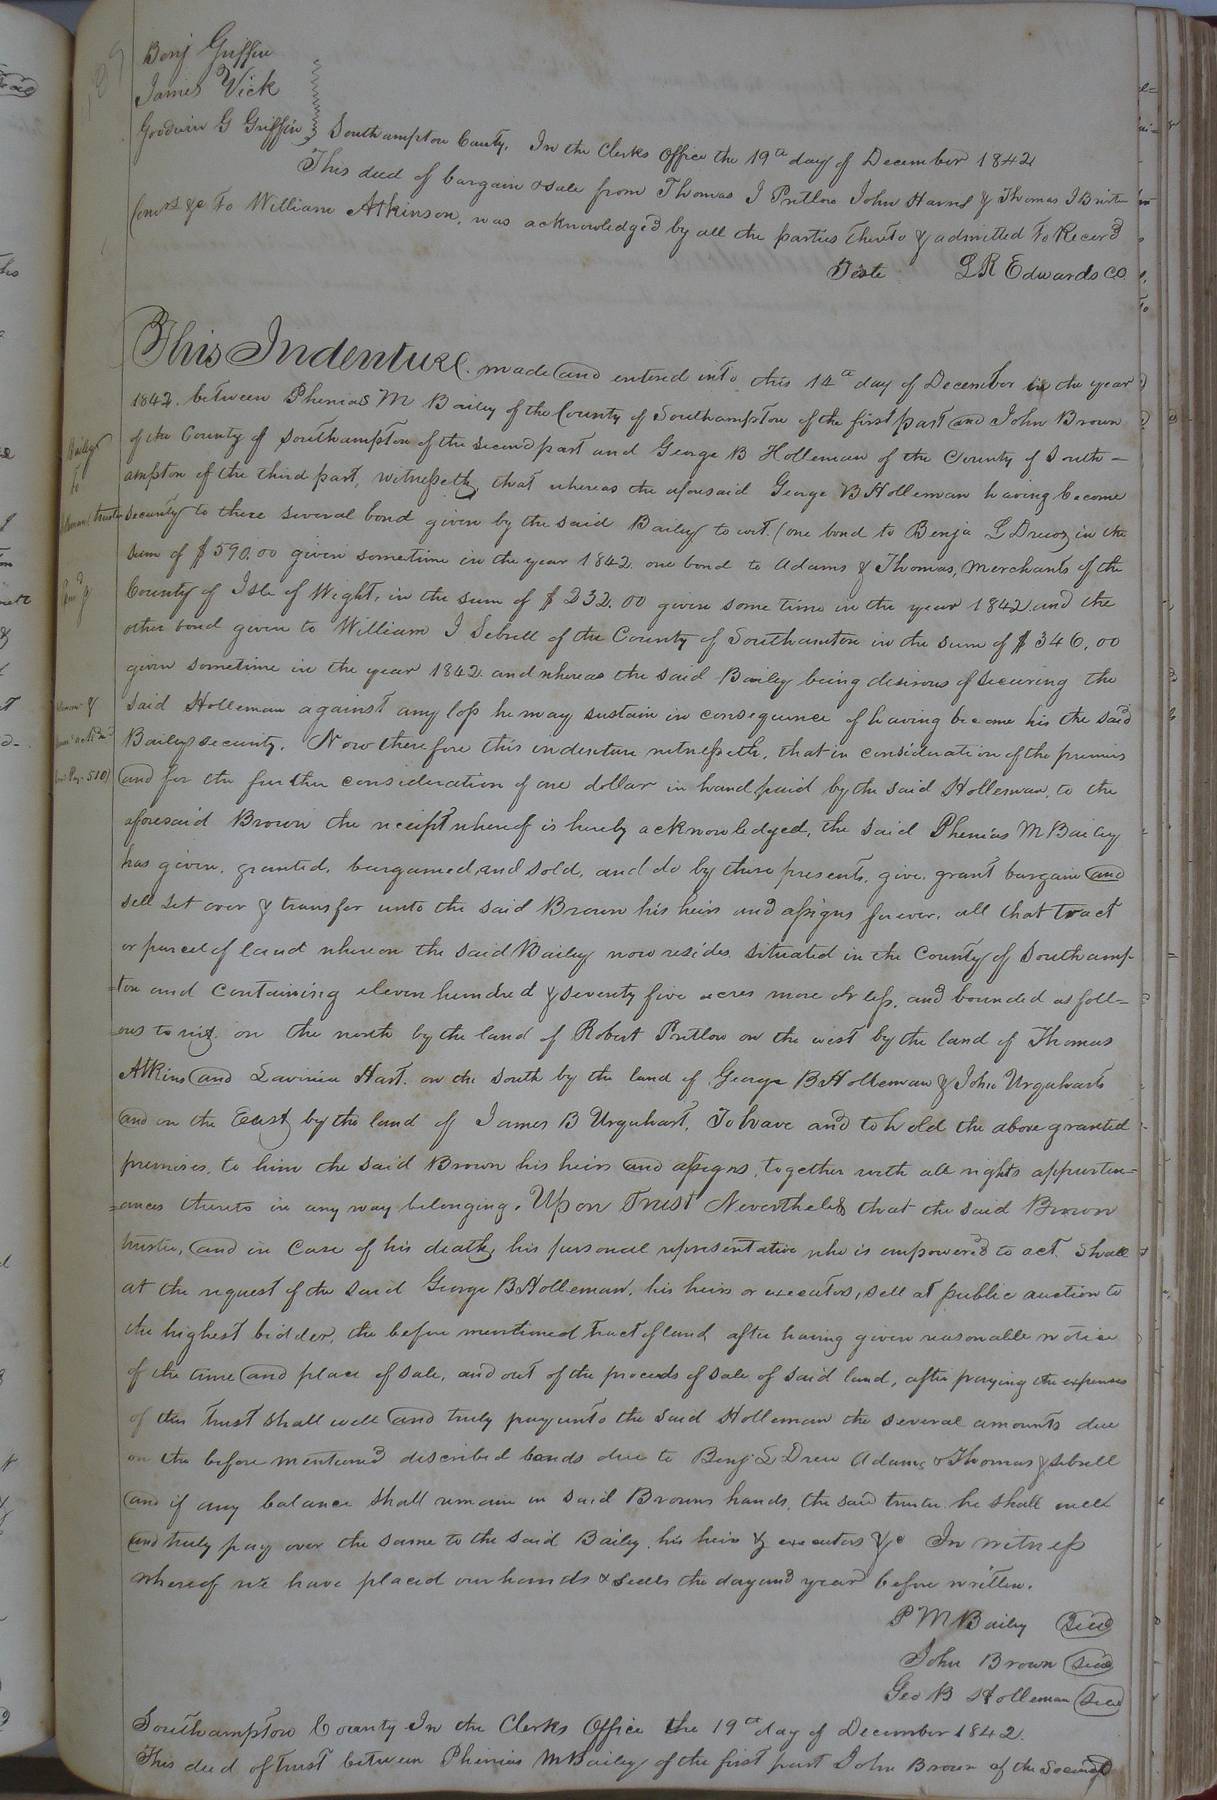 Benj Griffin
James Vick
Goodwin G Griffin } Southampton County. In the Clerks Office the 19th day of December 1842
This deed of bargain & sale from Thomas J Pretlow John Harris & Thomas J
comrs &c to William Atkinson, was acknowledged by all the parties thereto & admitted to Record
Teste L R Edwards CC
This Indenture made and entered into this 14th day of December in the year
1842. between Phenias M Bailey of the County of Southampton of the first part and John Brown
of the County of Southampton of the second part and George B Holleman of the County of South-
ampton of the third part, witnesseth, that whereas the aforesaid George B Holleman having become
security to these several bond given by the said Bailey to wit. (one bond to Benja L Drew, in the
sum of $590.00 given sometime in the year 1842. one bond to Adams & Thomas, merchants of the
County of Isle of Wight, in the sum of $232.00 given some time in the year 1842 and the
other bond given to William J Sebrell of the County of Southamton in the sum of $346.00
given sometime in the year 1842. and whereas the said Bailey being desirous of securing the
said Holleman against any loss he may sustain in consequence of having become his the said
Baileys security. Now therefore this indenture witnesseth, that in consideration of the premises
and for the further consideration of one dollar in hand paid by the said Holleman, to the
aforesaid Brown the receipt whereof is hereby acknowledged, the said Phenias M Bailey
has given, granted, bargained, and sold, and do by these presents, give, grant bargain and
sell set over & transfer unto the said Brown his heirs and assigns forever, all that tract
or parcel of land whereon the said Bailey now resides situated in the County of Southamp-
=ton and containing eleven hundred & seventy five acres more or less, and bounded as foll=
=ows to wit. on the north by the land of Robert Pretlow on the west by the land of Thomas
Atkins and Lavinia Hart. on the South by the land of George B Holleman & John Urquharts
and on the East, by the land of James B Urquhart, To have and to hold the above granted
premises, to him the said Brown his heirs and assigns, together with all rights apperten-
=ances thereto in any way belonging. Upon Trust Nevertheless that the said Brown
trustee, and in case of his death, his personal representative who is empowered to act. Shall
at the request of the said George B Holleman, his heirs or executors, sell at public auction to
the highest bidder, the before mentioned tract of land after having given reasonable notice
of the time and place of sale, and out of the proceeds of sale of said land, after paying the expenses
of this trust shall well and truly pay unto the said Holleman the several amounts due
on the before mentioned discribed bonds due to Benj L Drew Adams & Thomas & Sebrell
and if any balance shall remain in said Browns hands, the said trustee he shall well
and truly pay over the same to the said Bailey, his heirs & executors &c In witness
whereof we have placed our hands & seals the day and year before written.
P M Bailey Seal
John Brown Seal
Geo B Holleman Seal
Southampton County In the Clerks Office the 19th day of December 1842.
This deed of trust between Phenias M Bailey of the first part John Brown of the Second
Bailey
to
trust